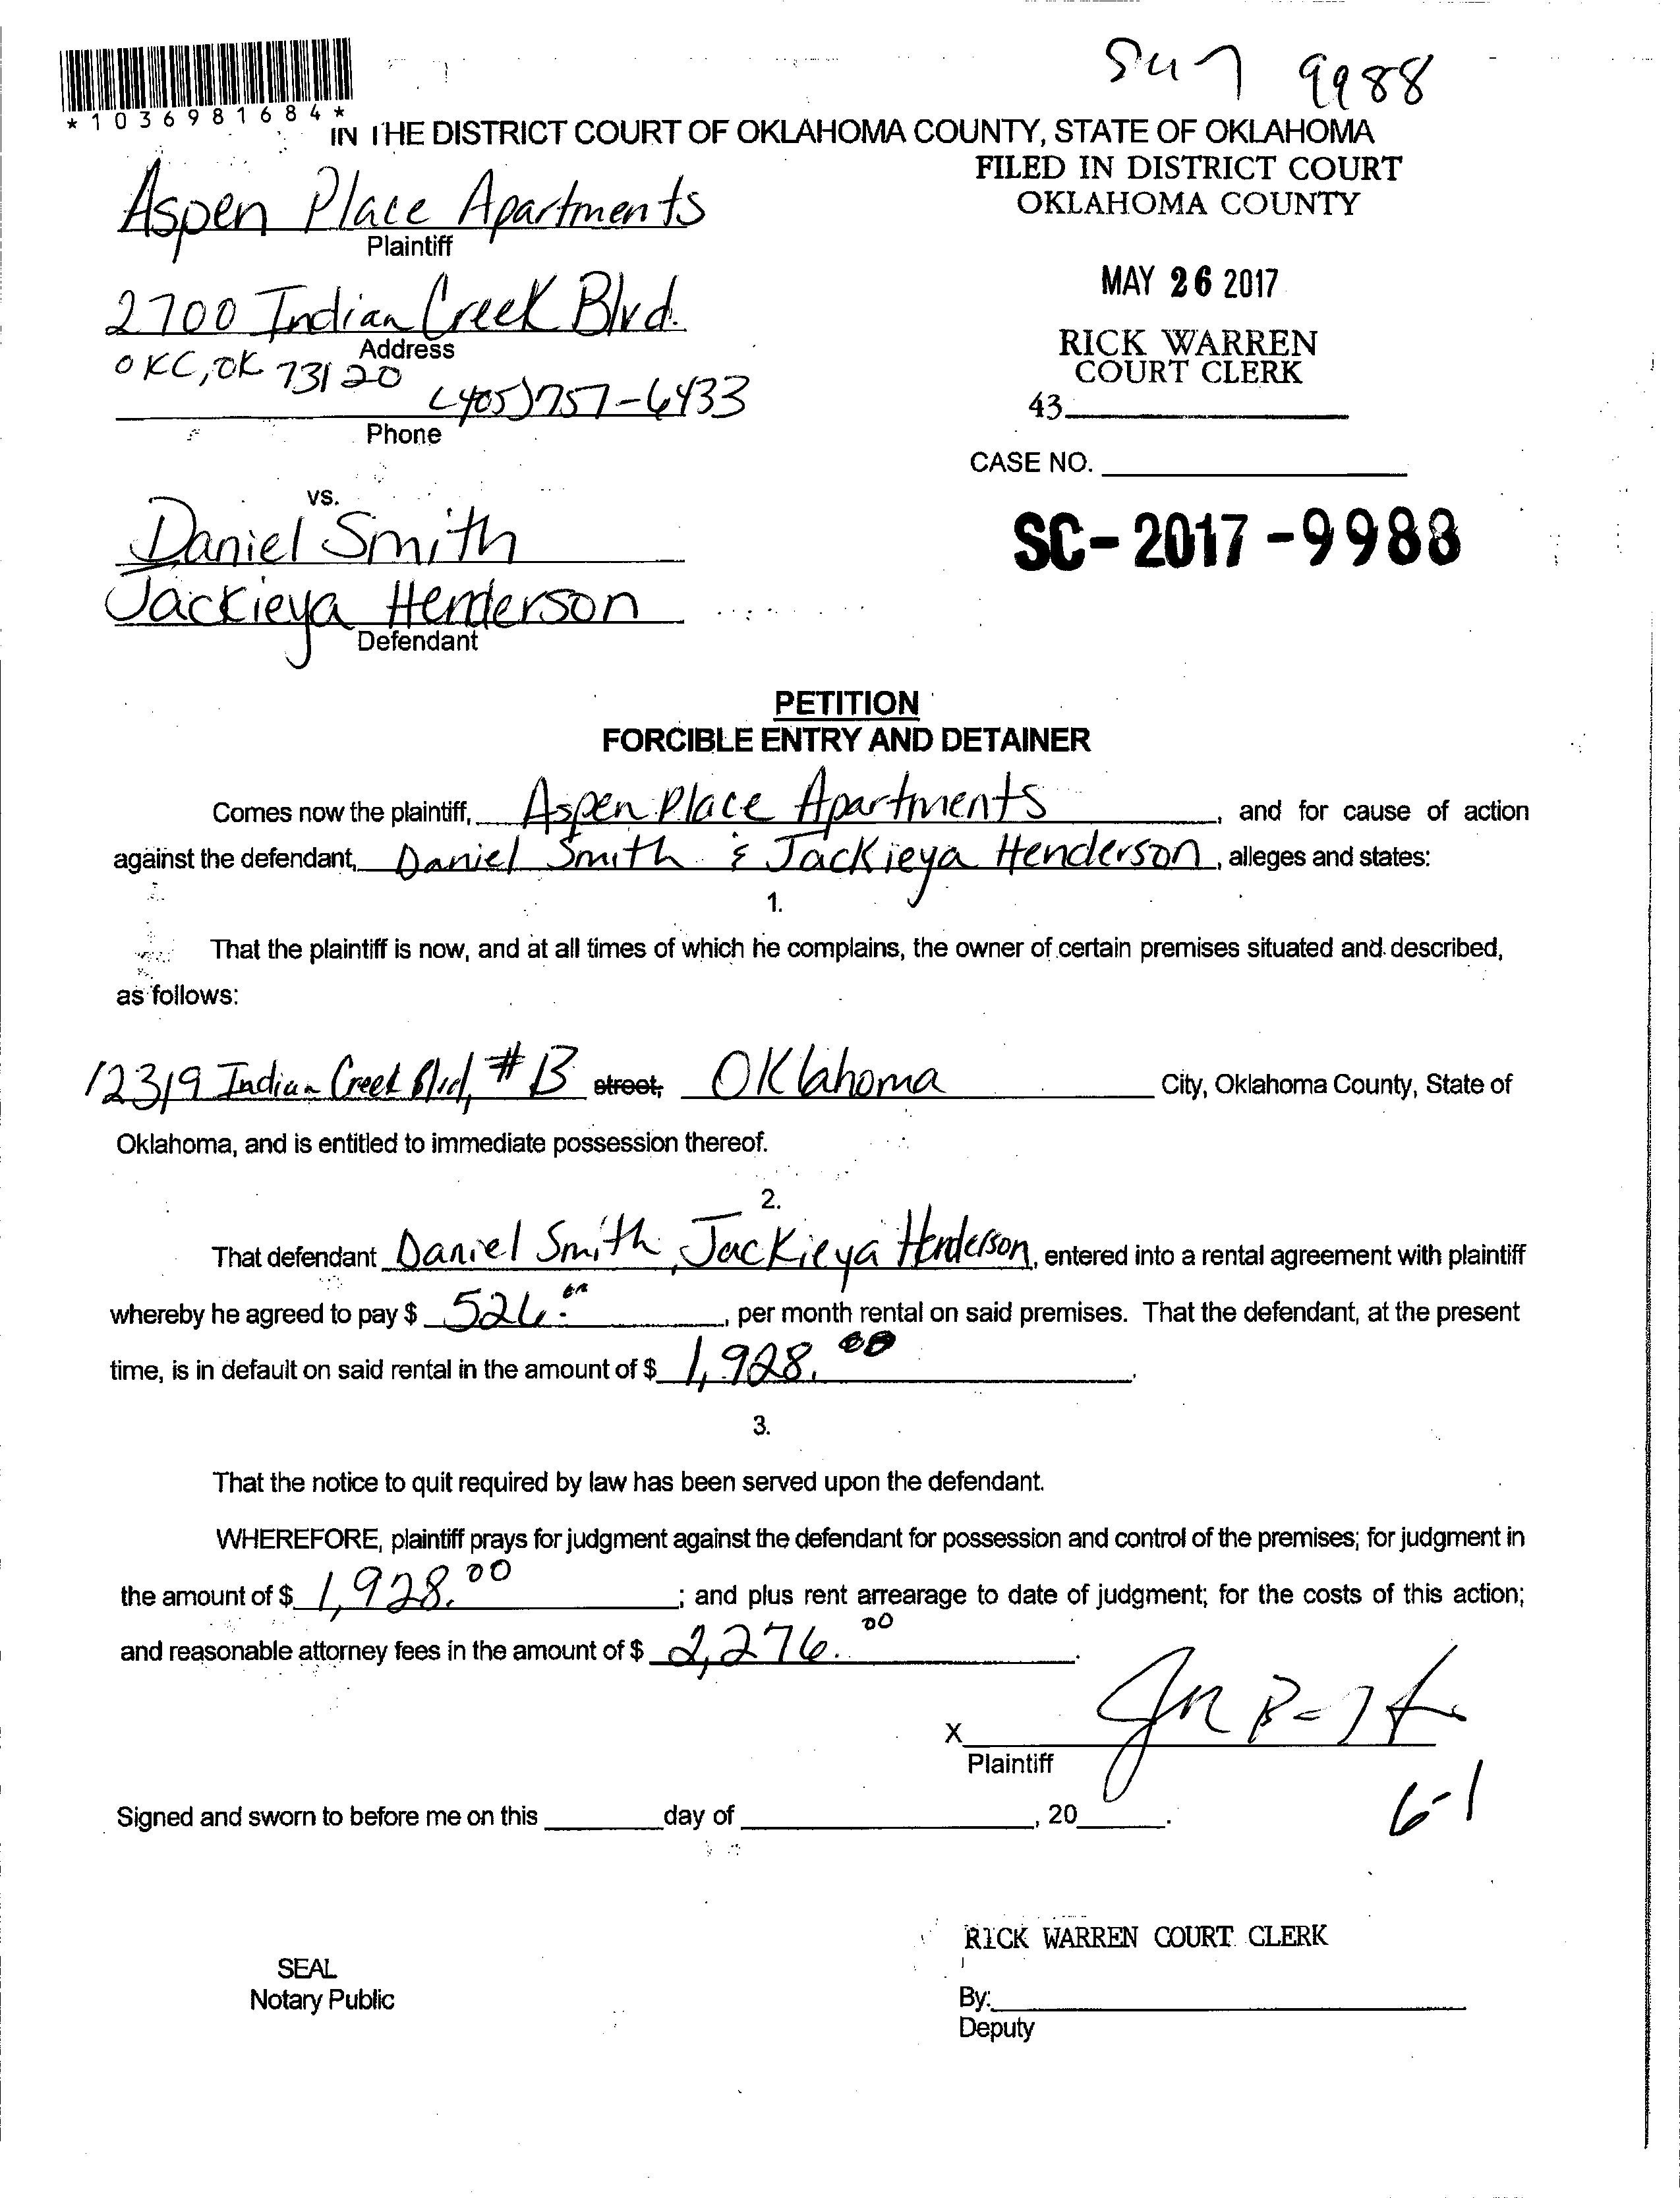 SC17 9988
*1036981684*
IN THE DISTRICT COURT OF OKLAHOMA COUNTY, STATE OF OKLAHOMA
FILED IN DISTRICT COURT
OKLAHOMA COUNTY
Aspen Place Apartments
Plaintiff
MAY 26 2017
2700 Indian Creek Blvd.
Address
RICK WARREN
COURT CLERK
OKC, OK 73120
(405)757-6433
43
Phone
CASE NO.
vs.
Daniel Smith
SC-2017-9988
Jackieya Henderson
Defendant
PETITION
FORCIBLE ENTRY AND DETAINER
Comes now the plaintiff, Aspen Place Apartments, and for cause of action
against the defendant, Daniel Smith & Jackieya Henderson, alleges and states:
1.
That the plaintiff is now, and at all times of which he complains, the owner of certain premises situated and described,
as follows:
12319 Indian Creek Blvd, #B street, Oklahoma City, Oklahoma County, State of
Oklahoma, and is entitled to immediate possession thereof.
2.
That defendant Daniel Smith, Jackieya Henderson, entered into a rental agreement with plaintiff
whereby he agreed to pay $ 526.00, per month rental on said premises. That the defendant, at the present
time, is in default on said rental in the amount of $ 1,928.00.
3.
That the notice to quit required by law has been served upon the defendant.
WHEREFORE, plaintiff prays for judgment against the defendant for possession and control of the premises; for judgment in
the amount of $ 1,928.00; and plus rent arrearage to date of judgment; for the costs of this action;
and reasonable attorney fees in the amount of $ 2,276.00.
X
Plaintiff
6-1
Signed and sworn to before me on this day of , 20 .
RICK WARREN COURT CLERK
SEAL
Notary Public
By:
Deputy